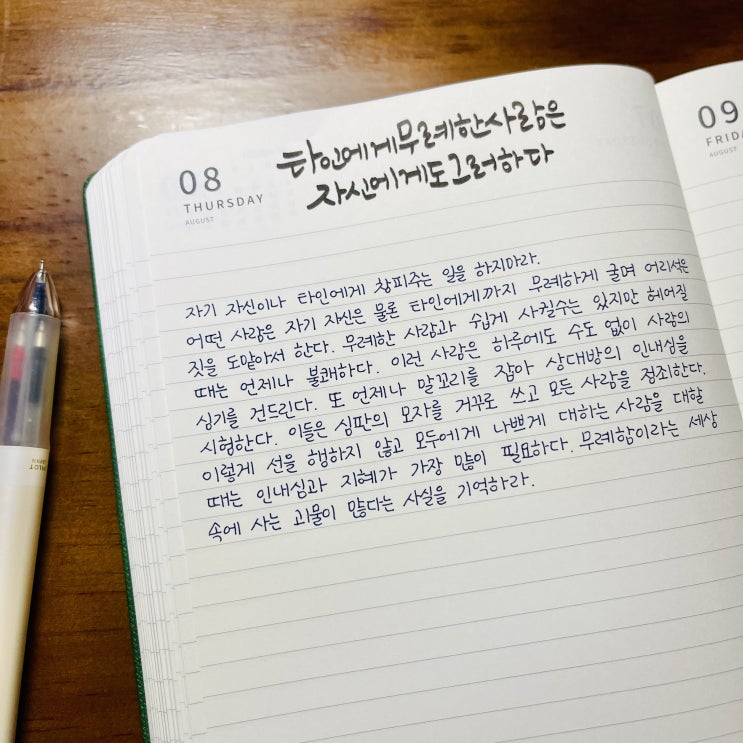 08
THURSDAY
AUGUST
타인에게무례한사람은
자신에게도그러하다
자기 자신이나 타인에게 창피주는 일을 하지마라.
어떤 사람은 자기 자신은 물론 타인에게까지 무례하게 굴며 어리석은
짓을 도맡아서 한다. 무례한 사람과 쉽게 사귈수는 있지만 헤어질
때는 언제나 불쾌하다. 이런 사람은 하루에도 수도 없이 사람의
심기를 건드린다. 또 언제나 말꼬리를 잡아 상대방의 인내심을
시험한다. 이들은 심판의 모자를 거꾸로 쓰고 모든 사람을 정죄한다.
이렇게 선을 행하지 않고 모두에게 나쁘게 대하는 사람을 대할
때는 인내심과 지혜가 가장 많이 필요하다. 무례함이라는 세상
속에 사는 괴물이 많다는 사실을 기억하라.
09
FRIDA
AUGUST
PILOT
JAPAN